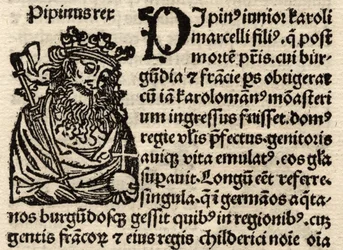 Pipinus rex
Pipin⁹ iunior karoli
marcelli fili⁹, q̃ post
mortē pr̃is. cui bur
gūdia ⁊ frācie ps obtigerat
cū iā karolomān⁹ mōasteri
um ingressus fuisset. dom⁹
regie vl̃is p̃fectus. genitoris
auiq̃ vita emulat⁹. eos gl̃a
supauit. Longū eēt referre.
singula. q̃ ĩ germãos aq̃ta-
nos burgūdosq̃ gessit quib⁹ in regionib⁹. cuȝ
gentis frācoꝝ ⁊ eius regis childerici noīe oīa